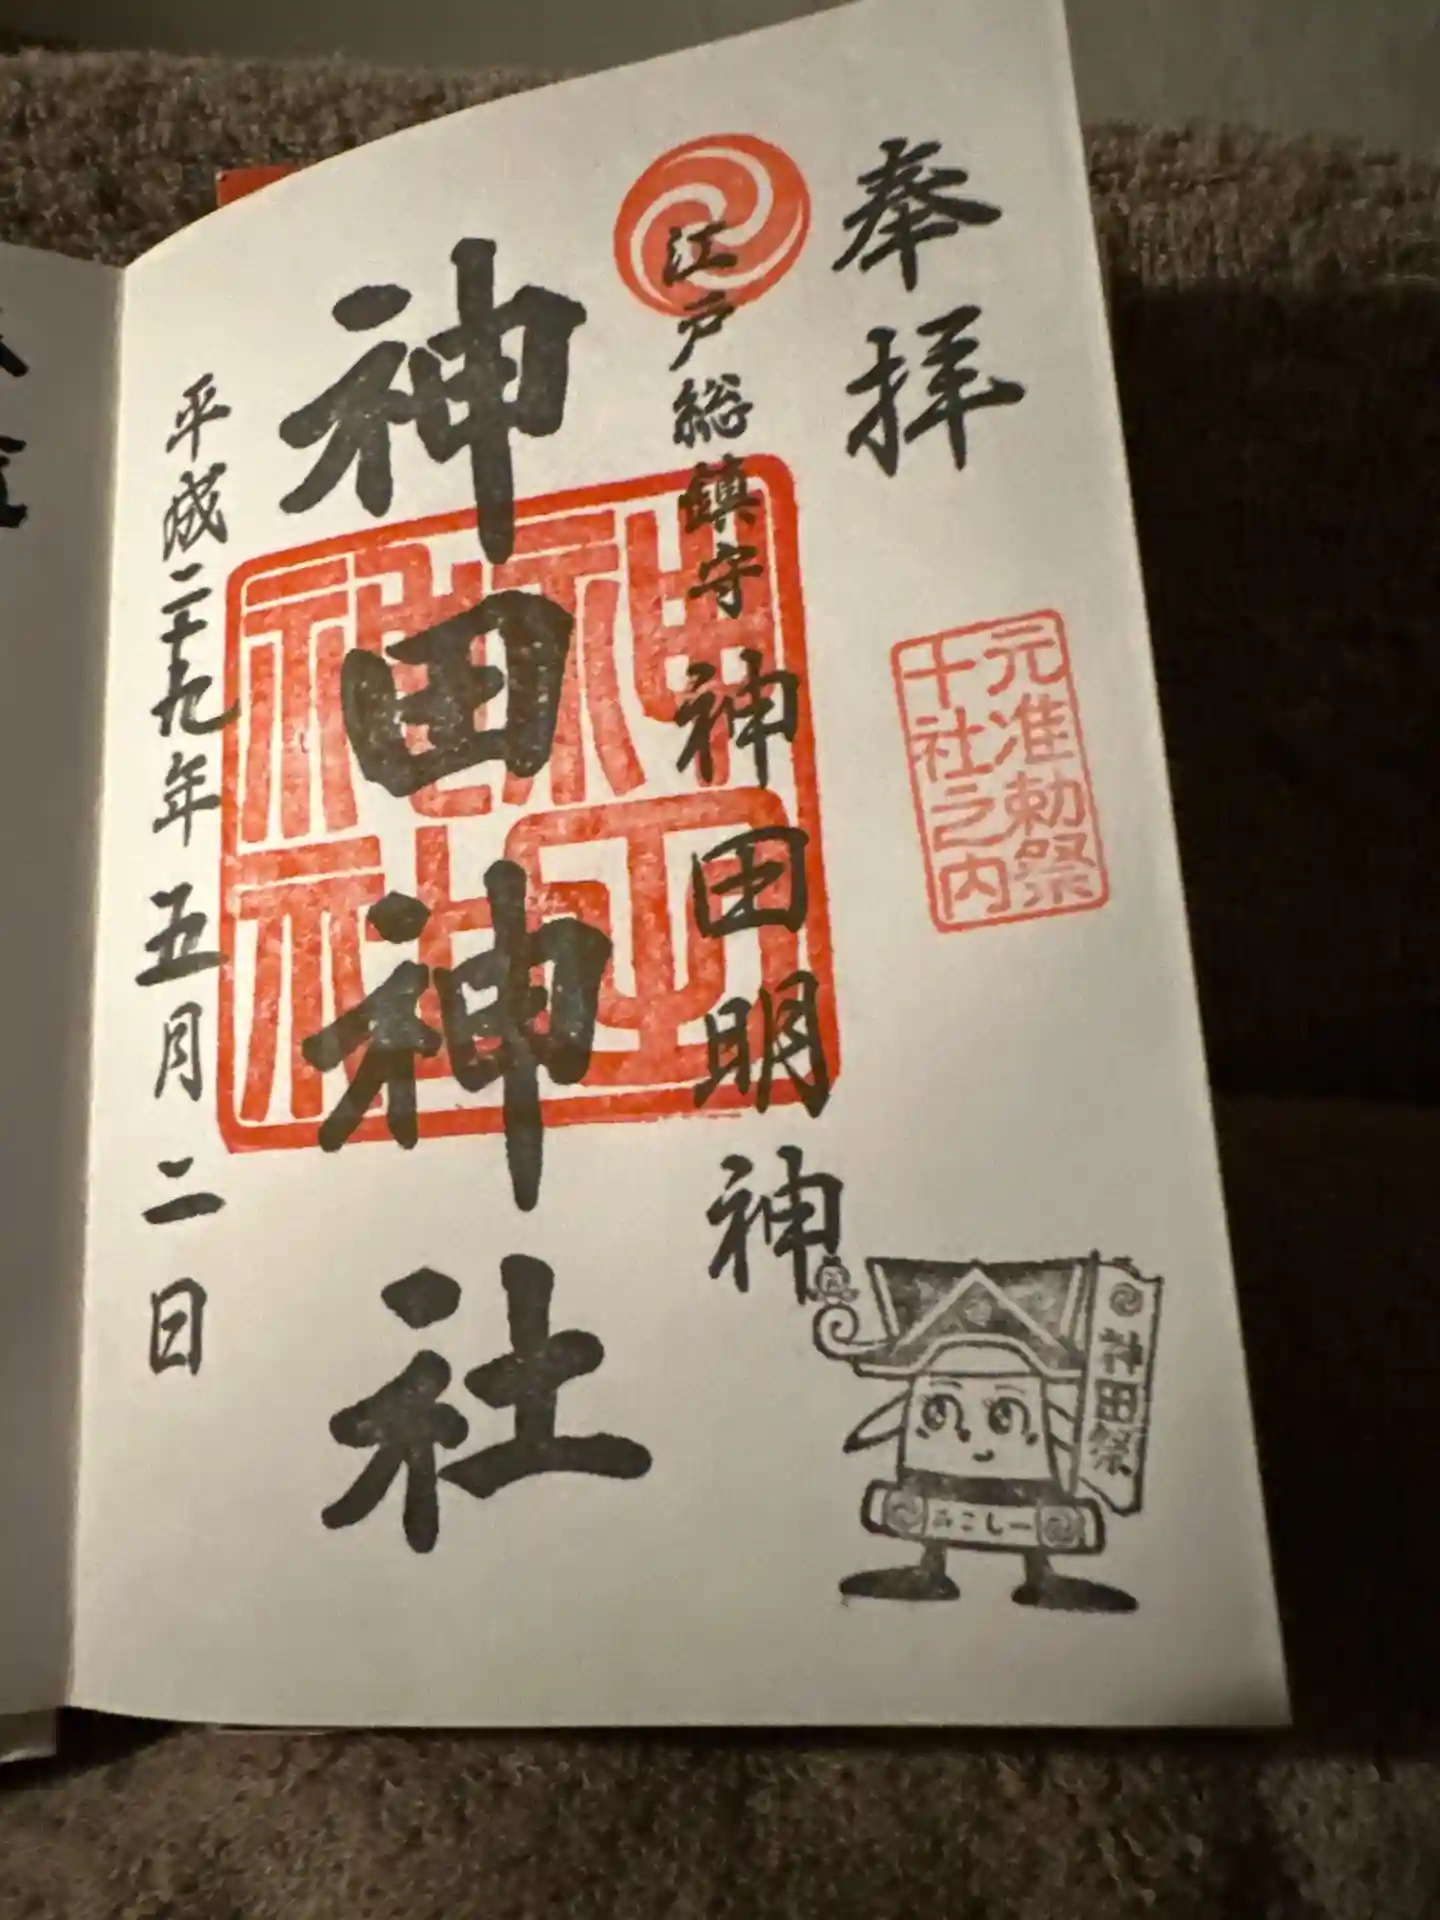 奉拝
元准勅祭
十社之内
江戸総鎮守神田明神
神田神社
平成二十九年五月二日
神田祭
みこしー